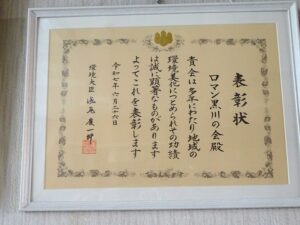 表彰状
ロマン黒川の会殿
貴会は多年にわたり地域の
環境美化につとめられその功績
は誠に顕著なものがあります
よってこれを表彰します
令和七年六月二十六日
環境大臣 浅尾慶一郎